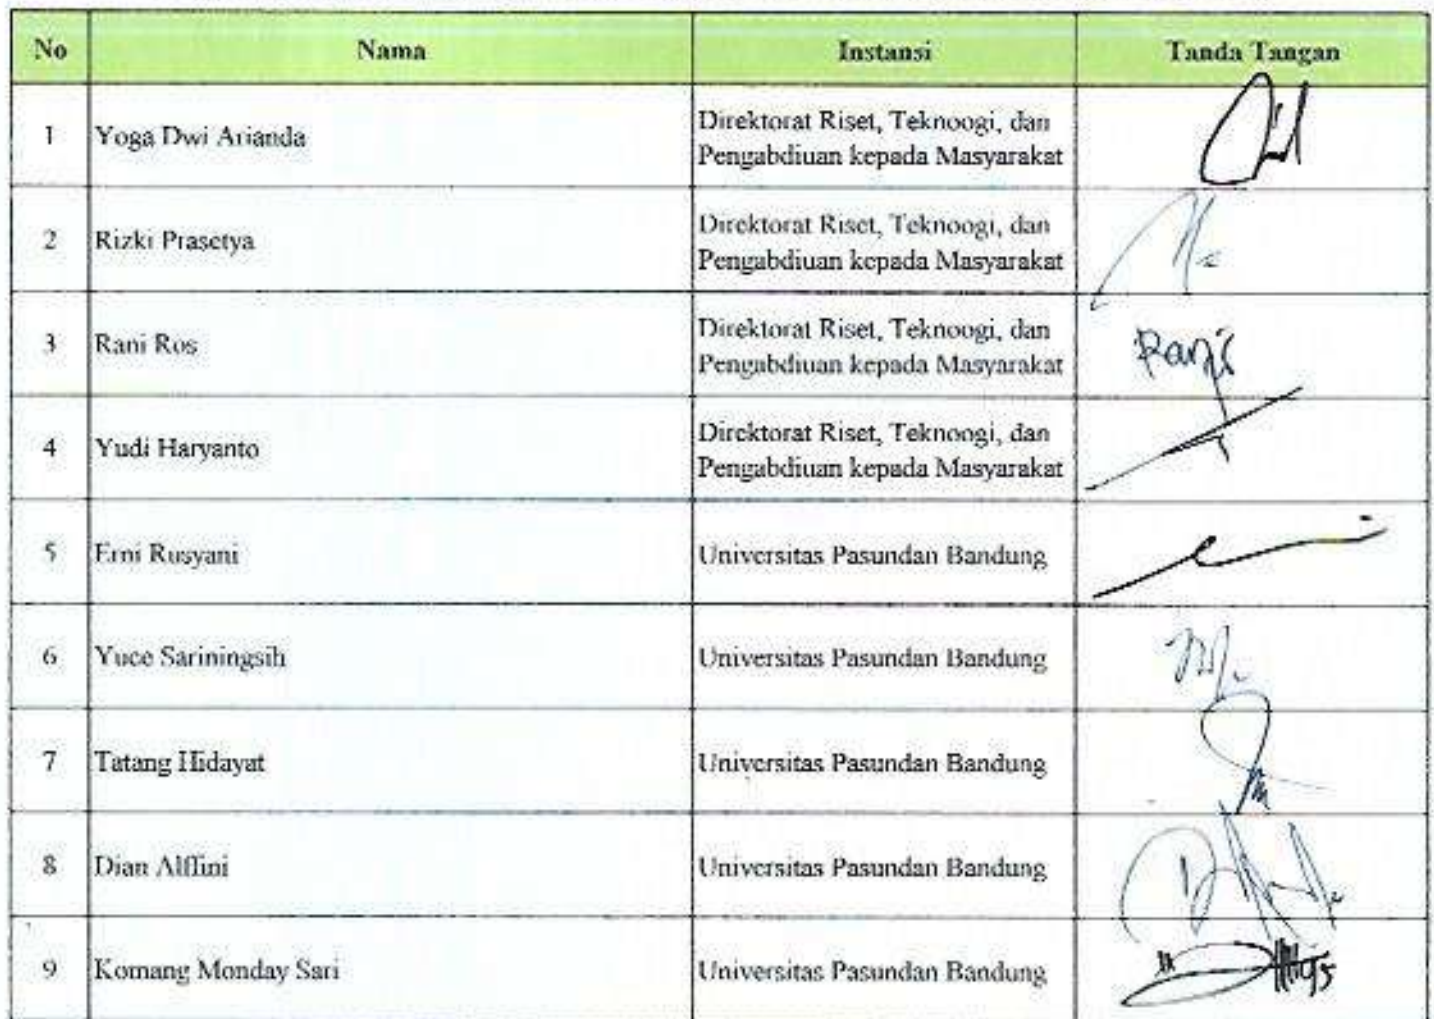 No Nama Instansi Tanda Tangan
1 Yoga Dwi Arianda Direktorat Riset, Teknoogi, dan
Pengabdiuan kepada Masyarakat
2 Rizki Prasetya Direktorat Riset, Teknoogi, dan
Pengabdiuan kepada Masyarakat
3 Rani Ros Direktorat Riset, Teknoogi, dan
Pengabdiuan kepada Masyarakat Rani
4 Yudi Haryanto Direktorat Riset, Teknoogi, dan
Pengabdiuan kepada Masyarakat
5 Erni Rusyani Universitas Pasundan Bandung
6 Yuce Sariningsih Universitas Pasundan Bandung
7 Tatang Hidayat Universitas Pasundan Bandung
8 Dian Alffini Universitas Pasundan Bandung
9 Komang Monday Sari Universitas Pasundan Bandung